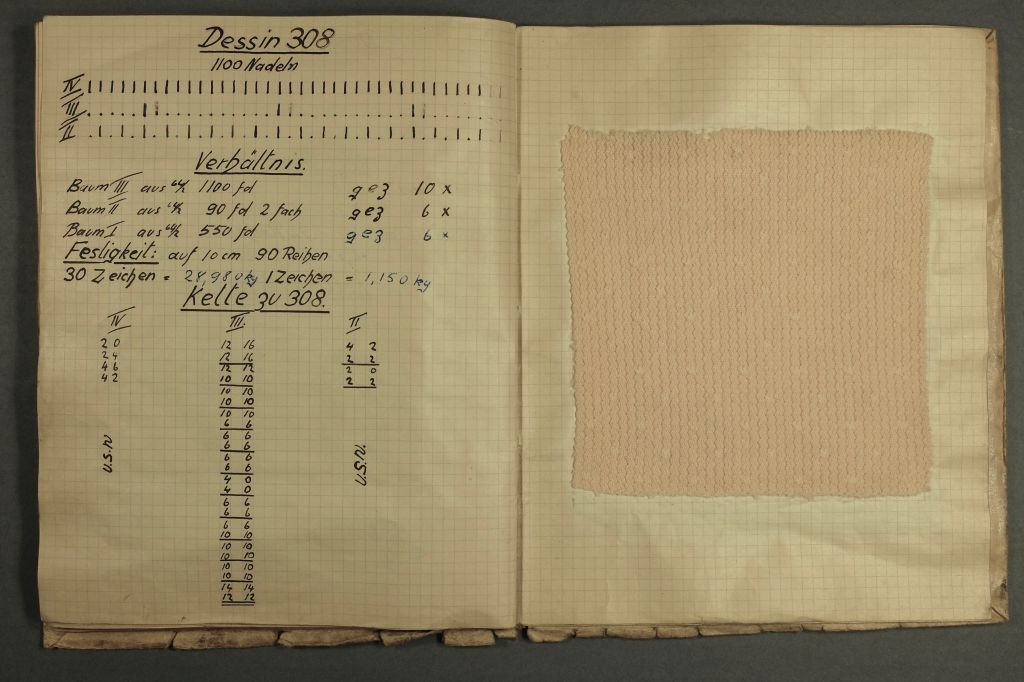 Dessin 308
1100 Nadeln
IV
III
II
Verhältnis.
Baum III aus 1100 fd gez 10 x
Baum II aus 90 fd 2 fach gez 6 x
Baum I aus 550 fd gez 6 x
Festigkeit: auf 10 cm 90 Reihen
30 Zeichen = 28,980 kg 1 Zeichen = 1,150 kg
Kette zu 308.
IV III. II
2 0 12 16 4 2
2 4 12 16 2 2
4 6 12 12 2 0
4 2 10 10 2 2
10 10
10 10
10 10
6 6
6 6
6 6
6 6
6 6
4 0
4 0
6 6
6 6
6 6
10 10
10 10
10 10
10 10
14 14
12 12
U.S.W.
U.S.W.